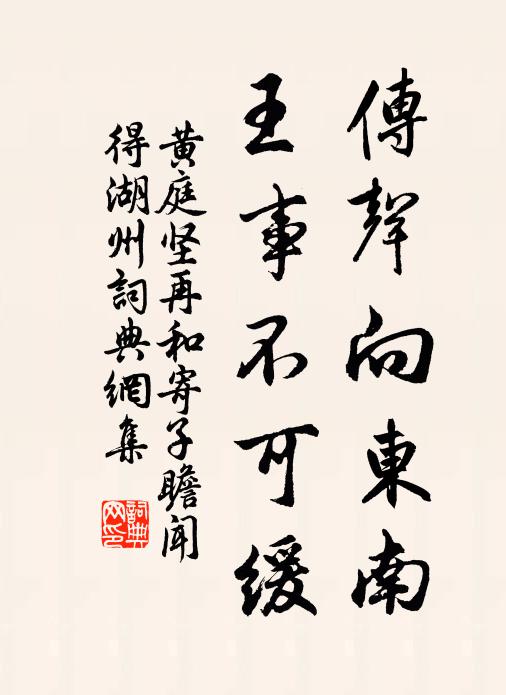 傳聲向東南
王事不可緩
黄庭坚再和寄子瞻闻
得湖州詞典網集
詞典
网印